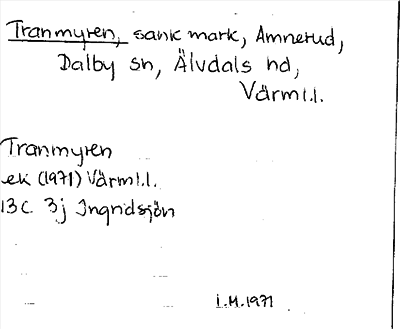 Tranmyren, sank mark, Amnerud,
Dalby sn, Älvdals hd,
Värml.l.
Tranmyren
ek (1971) Värml.l.
13C 3j Ingridsjön
I.H.1971